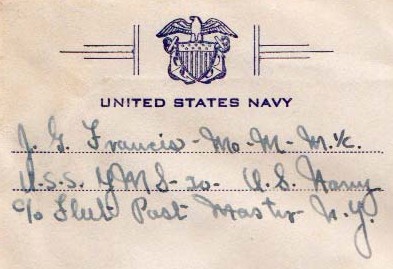 UNITED STATES NAVY
J. G. Francis - Mo. M. M. 1/c.
U.S.S. YMS-20- U.S. Navy
c/o Fleet Post Master N.Y.